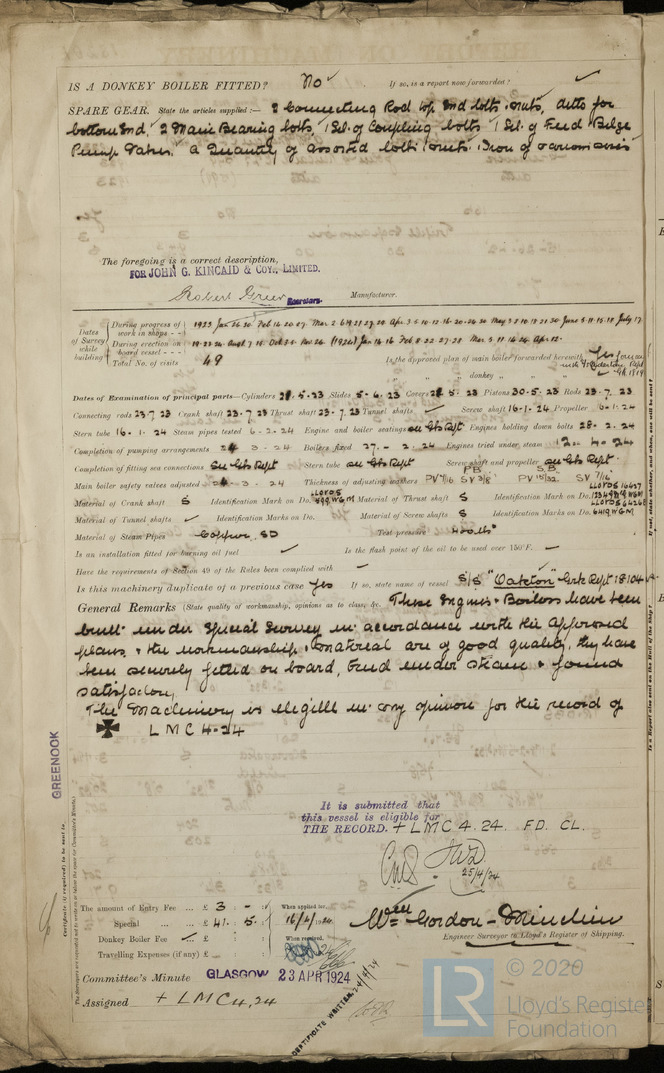 IS A DONKEY BOILER FITTED? No If so, is a report now forwarded?
SPARE GEAR. State the articles supplied:— 2 Connecting Rod top End bolts & nuts, ditto for
bottom End. 2 Main Bearing bolts, 1 Set of Coupling bolts 1 Set of Feed & Bilge
Pump Valves. a Quantity of assorted bolts & nuts. Iron of various sizes
The foregoing is a correct description,
FOR JOHN G. KINCAID & COY., LIMITED.
Robert Greer Manufacturer.
Dates of Survey while building
During progress of work in shops - -
1923 Jan 26 30 Feb 16 20 27 Mar 2 6 9 21 27 29 Apr 3 5 10 12 16 20 24 30 May 3 2 10 17 21 30 June 5 11 15 18 July 17
During erection on board vessel - - -
Total No. of visits 49
Is the approved plan of main boiler forwarded herewith Yes
" " " donkey " " "
Dates of Examination of principal parts—Cylinders 5.23 Slides 5.6.23 Covers 5.23 Pistons 30.5.23 Rods 23.7.23
Connecting rods 23.7.23 Crank shaft 23.7.23 Thrust shaft 23.7.23 Tunnel shafts Screw shaft 16.1.24 Propeller 16.1.24
Stern tube 16.1.24 Steam pipes tested 6.2.24 Engine and boiler seatings see Gls Rept Engines holding down bolts 28.2.24
Completion of pumping arrangements 24.3.24 Boilers fixed 27.2.24 Engines tried under steam 12.4.24
Completion of fitting sea connections See Gls Rept Stern tube see Gls Rept Screw shaft and propeller see Gls Rept
Main boiler safety valves adjusted 24.3.24 Thickness of adjusting washers PB SB
Material of Crank shaft S Identification Mark on Do. LLOYDS 499 WGM Material of Thrust shaft S Identification Mark on Do.
Material of Tunnel shafts Identification Marks on Do. Material of Screw shafts S Identification Marks on Do. 6419 WGM
Material of Steam Pipes Copper, SD Test pressure 400 lbs
Is an installation fitted for burning oil fuel Is the flash point of the oil to be used over 150°F.
Have the requirements of Section 49 of the Rules been complied with
Is this machinery duplicate of a previous case Yes If so, state name of vessel S/S "Oakton" Grk Rept 18104
General Remarks (State quality of workmanship, opinions as to class, &c. These Engines & Boilers have been
built under Special Survey in accordance with the Approved
plans & the workmanship & material are of good quality, they have
been securely fitted on board, tried under steam & found
satisfactory.
The Machinery is eligible in my opinion for the record of
✠ LMC 4-24
GREENOCK
It is submitted that
this vessel is eligible for
THE RECORD. + LMC 4.24. FD. CL.
25/4/24
The amount of Entry Fee ... £ 3 : - :
Special ... £ 41 : 5 :
Donkey Boiler Fee £ : :
Travelling Expenses (if any) £ : :
When applied for, 16/4/1924
When received,
Wm Gordon-
Engineer Surveyor to Lloyd's Register of Shipping.
Committee's Minute GLASGOW 23 APR 1924
Assigned + LMC 4,24
CERTIFICATE WRITTEN 24/4/24
© 2020
Lloyd's Register
Foundation
LR